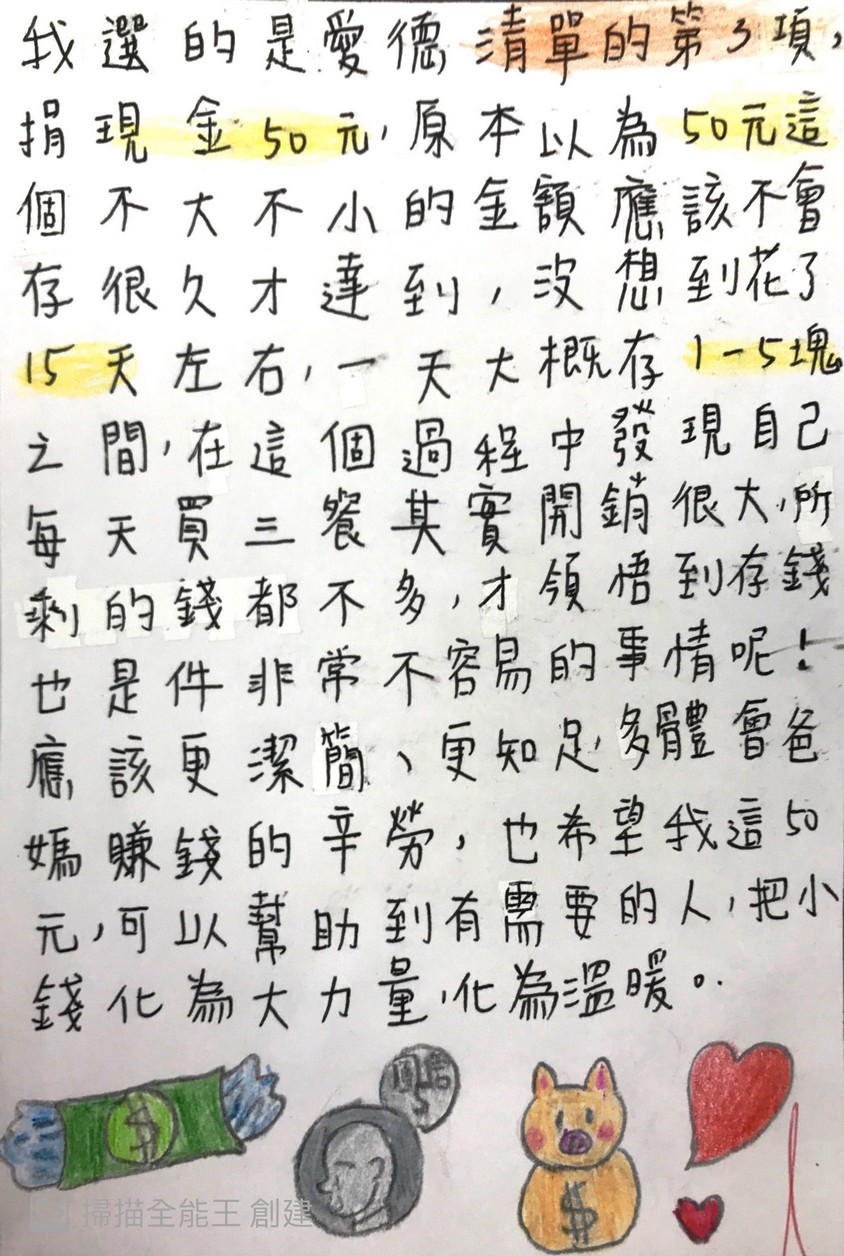 我選的是愛德清單的第3項，
捐現金50元，原本以為50元這
個不大不小的金額應該不會
存很久才達到，沒想到花了
15天左右，一天大概存1-5塊
之間，在這個過程中發現自己
每天買三餐其實開銷很大，所
剩的錢都不多，才領悟到存錢
也是件非常不容易的事情呢！
應該更潔簡、更知足，多體會爸
媽賺錢的辛勞，也希望我這50
元，可以幫助到有需要的人，把小
錢化為大力量，化為溫暖。
$
$
掃描全能王 創建